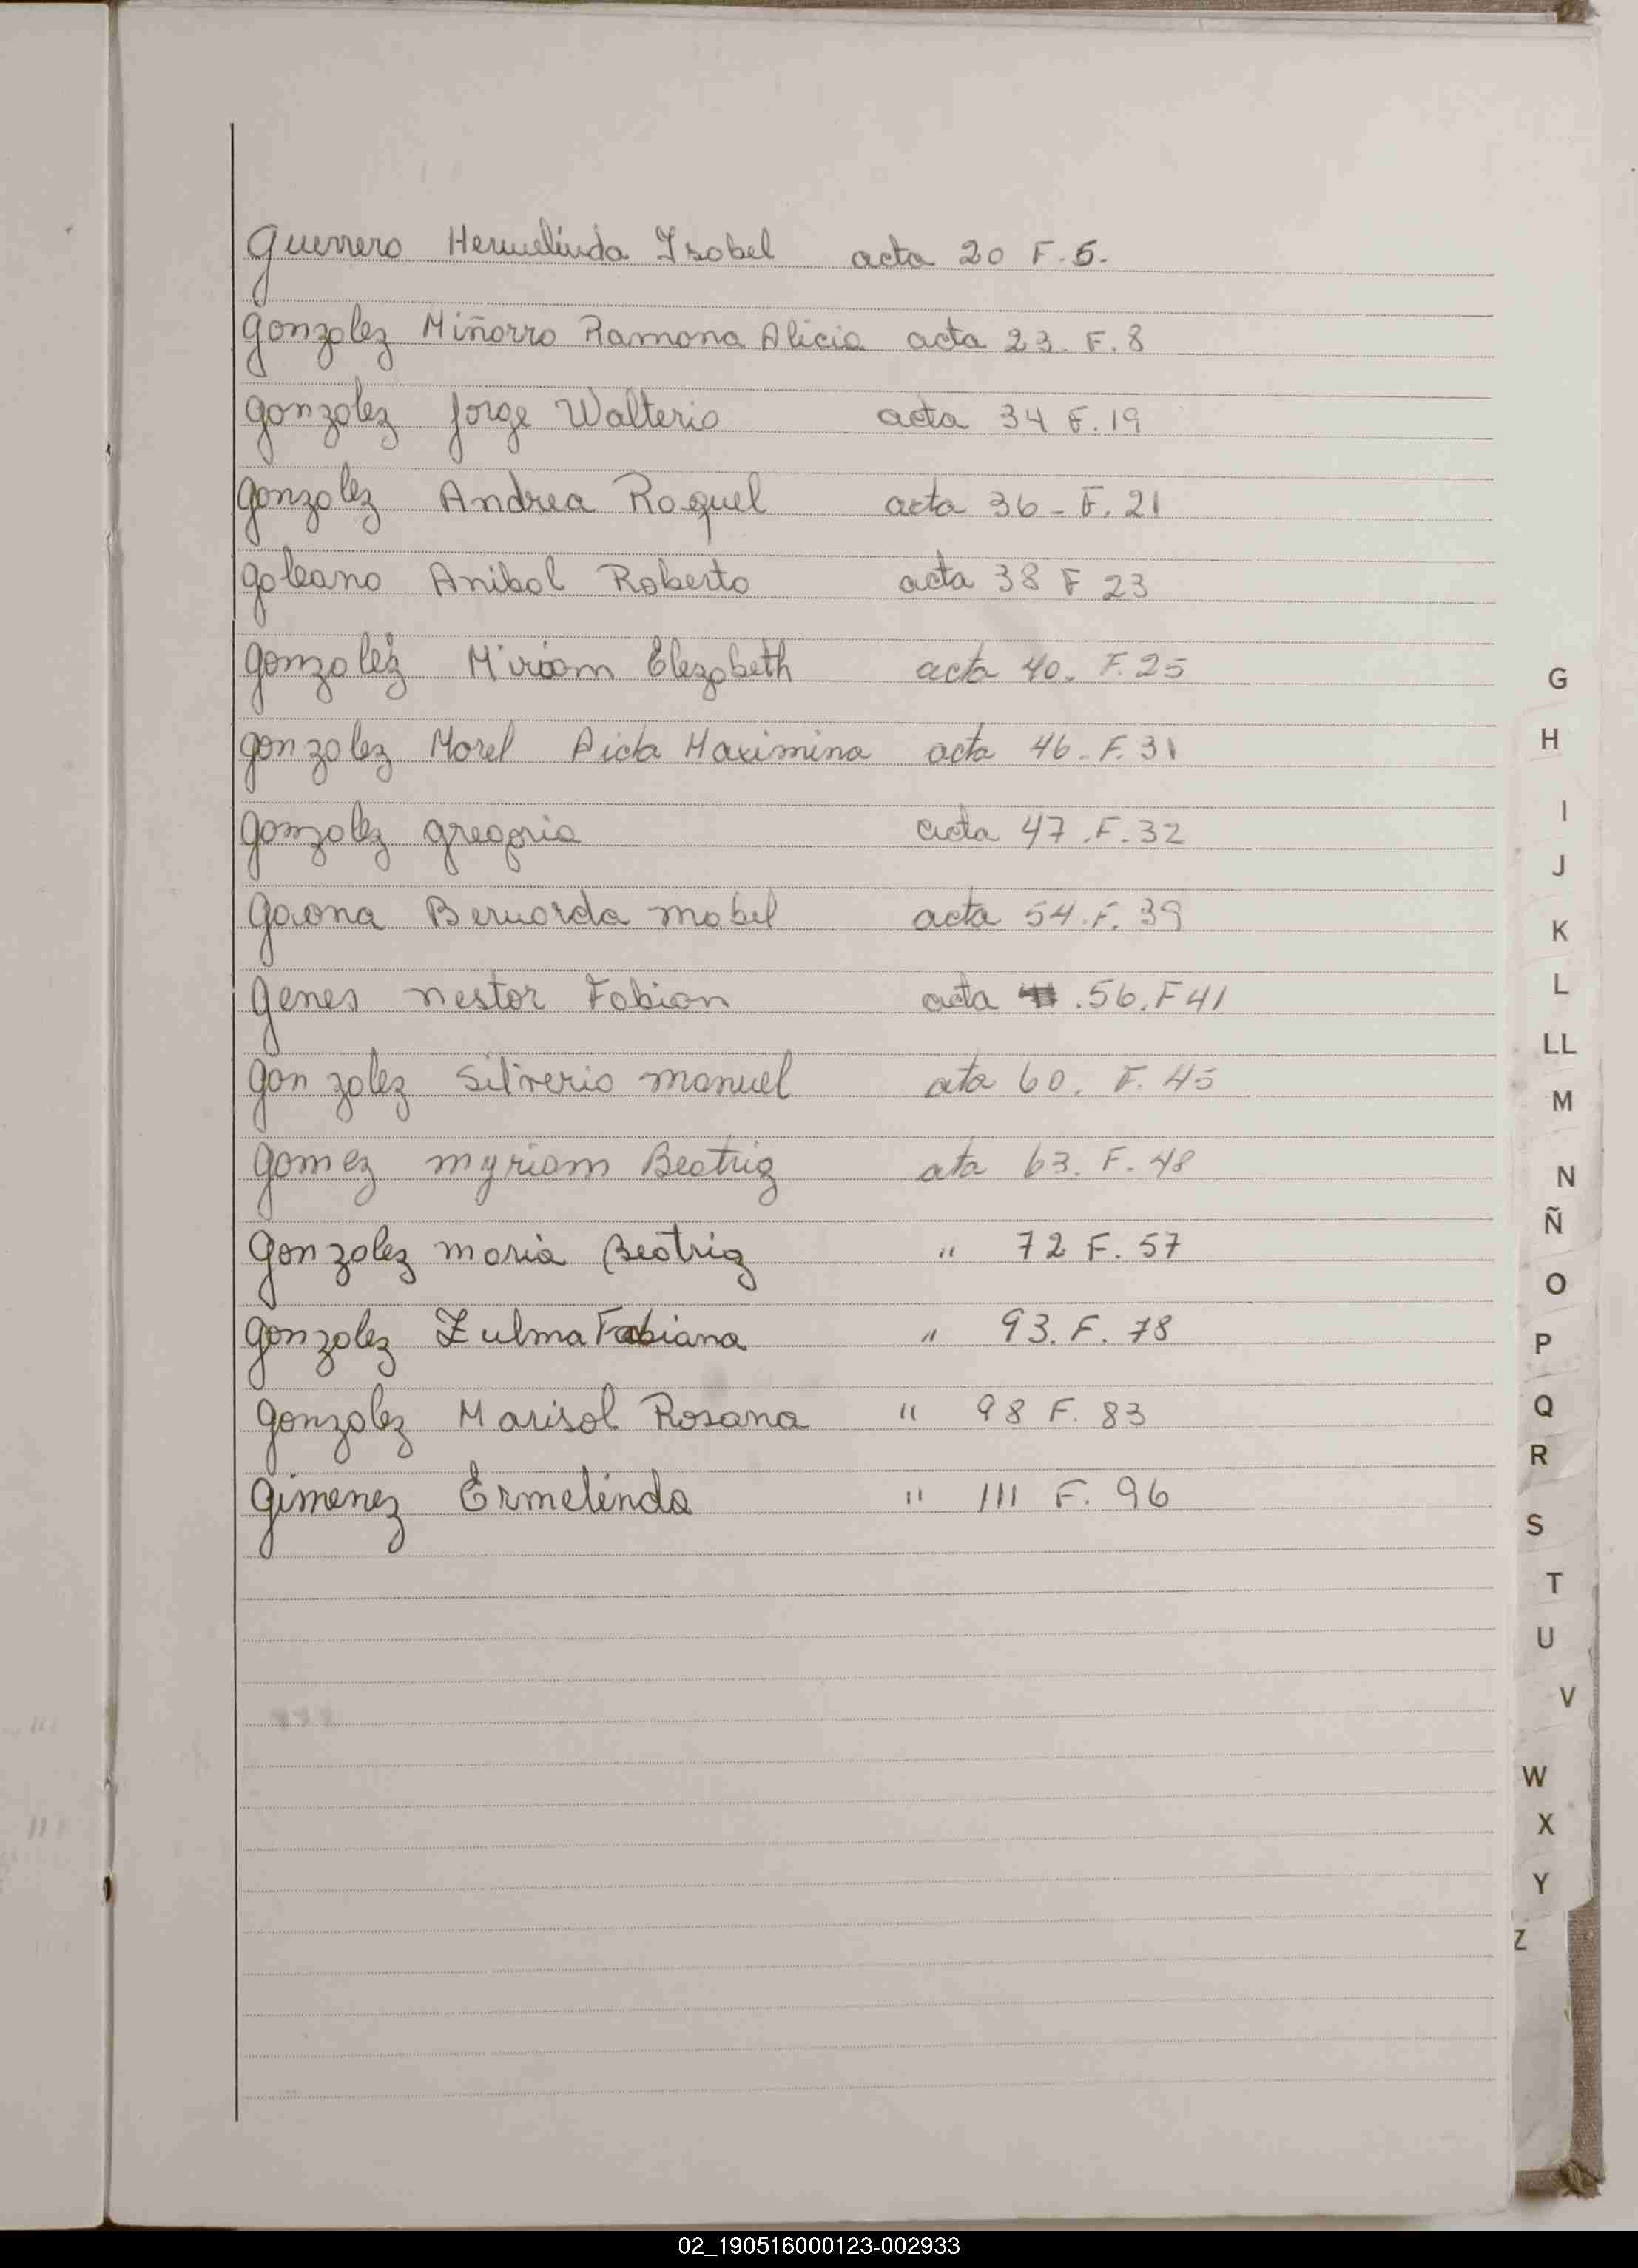 Guerrero Hermelinda Isabel acta 20 F. 5.
Gonzalez Miñarro Ramona Alicia acta 23. F. 8
Gonzalez Jorge Walterio acta 34 F. 19
Gonzalez Andrea Raquel acta 36 - F. 21
Galeano Anibal Roberto acta 38 F 23
Gonzalez Miriam Elezabeth acta 40. F. 25
Gonzalez Morel Maximina acta 46. F. 31
Gonzalez Gregoria acta 47. F. 32
Gaona Bernarda Mabel acta 54. F. 39
Genes Nestor Fabian acta .56. F 41
Gonzalez Silverio Manuel ata 60. F. 45
Gomez Myriam Beatriz ata 63. F. 48
Gonzalez Maria Beatriz " 72 F. 57
Gonzalez Zulma Fabiana " 93. F. 78
Gonzalez Marisol Rosana " 98 F. 83
Gimenez Ermelinda " 111 F. 96
G
H
I
J
K
L
LL
M
N
Ñ
O
P
Q
R
S
T
U
V
W
X
Y
Z
02_190516000123-002933